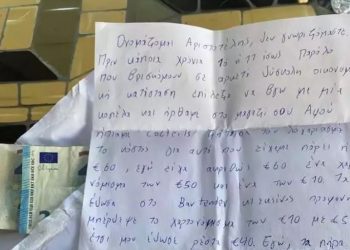 Ονομάζομαι Αριστοτέλης, δεν γνωριζόμαστε.
Πριν κάποια χρόνια 10 ή 11 ίσως παρόλο
που βρισκόμουν σε αρκετά δύσκολη οικονομι
κή κατάσταση επέλεξα να βγω με μία
κοπέλα και ήρθαμε στο μαγαζί σου. Αφού
ήπιαμε cocktails ζήτησα τον λογαριασμό
Το κόστος για αυτό που είχαμε πάρει ή
€60, εγώ είχα ακριβώς €60 ένα χα
νόμισμα των €50 και ένα των €10. Τα
έδωσα στο Bartender εκείνος
μπέρδεψε το χαρτονόμισμα των €10 με €5
έτσι μου έδωσε ρέστα €40. Εγώ, τα πήρα